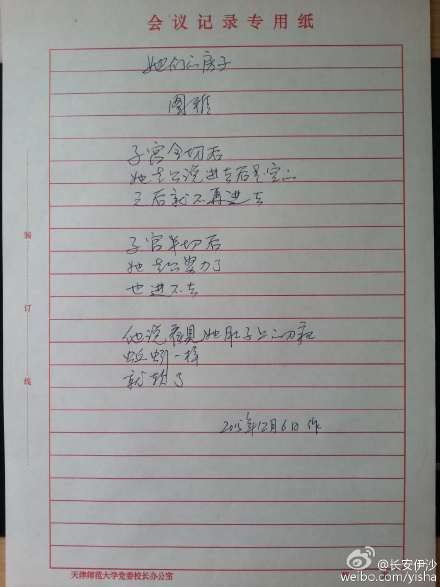 会议记录专用纸
她们的房子
图雅
子宫全切后
她老公说进去后是空的
之后就不再进去
子宫半切后
她老公努力了
也进不去
他说看见她肚子上的刀疤
蚯蚓一样
就软了
2015年12月6日 作
装
订
线
天津师范大学党委校长办公室
@长安伊沙
weibo.com/yisha